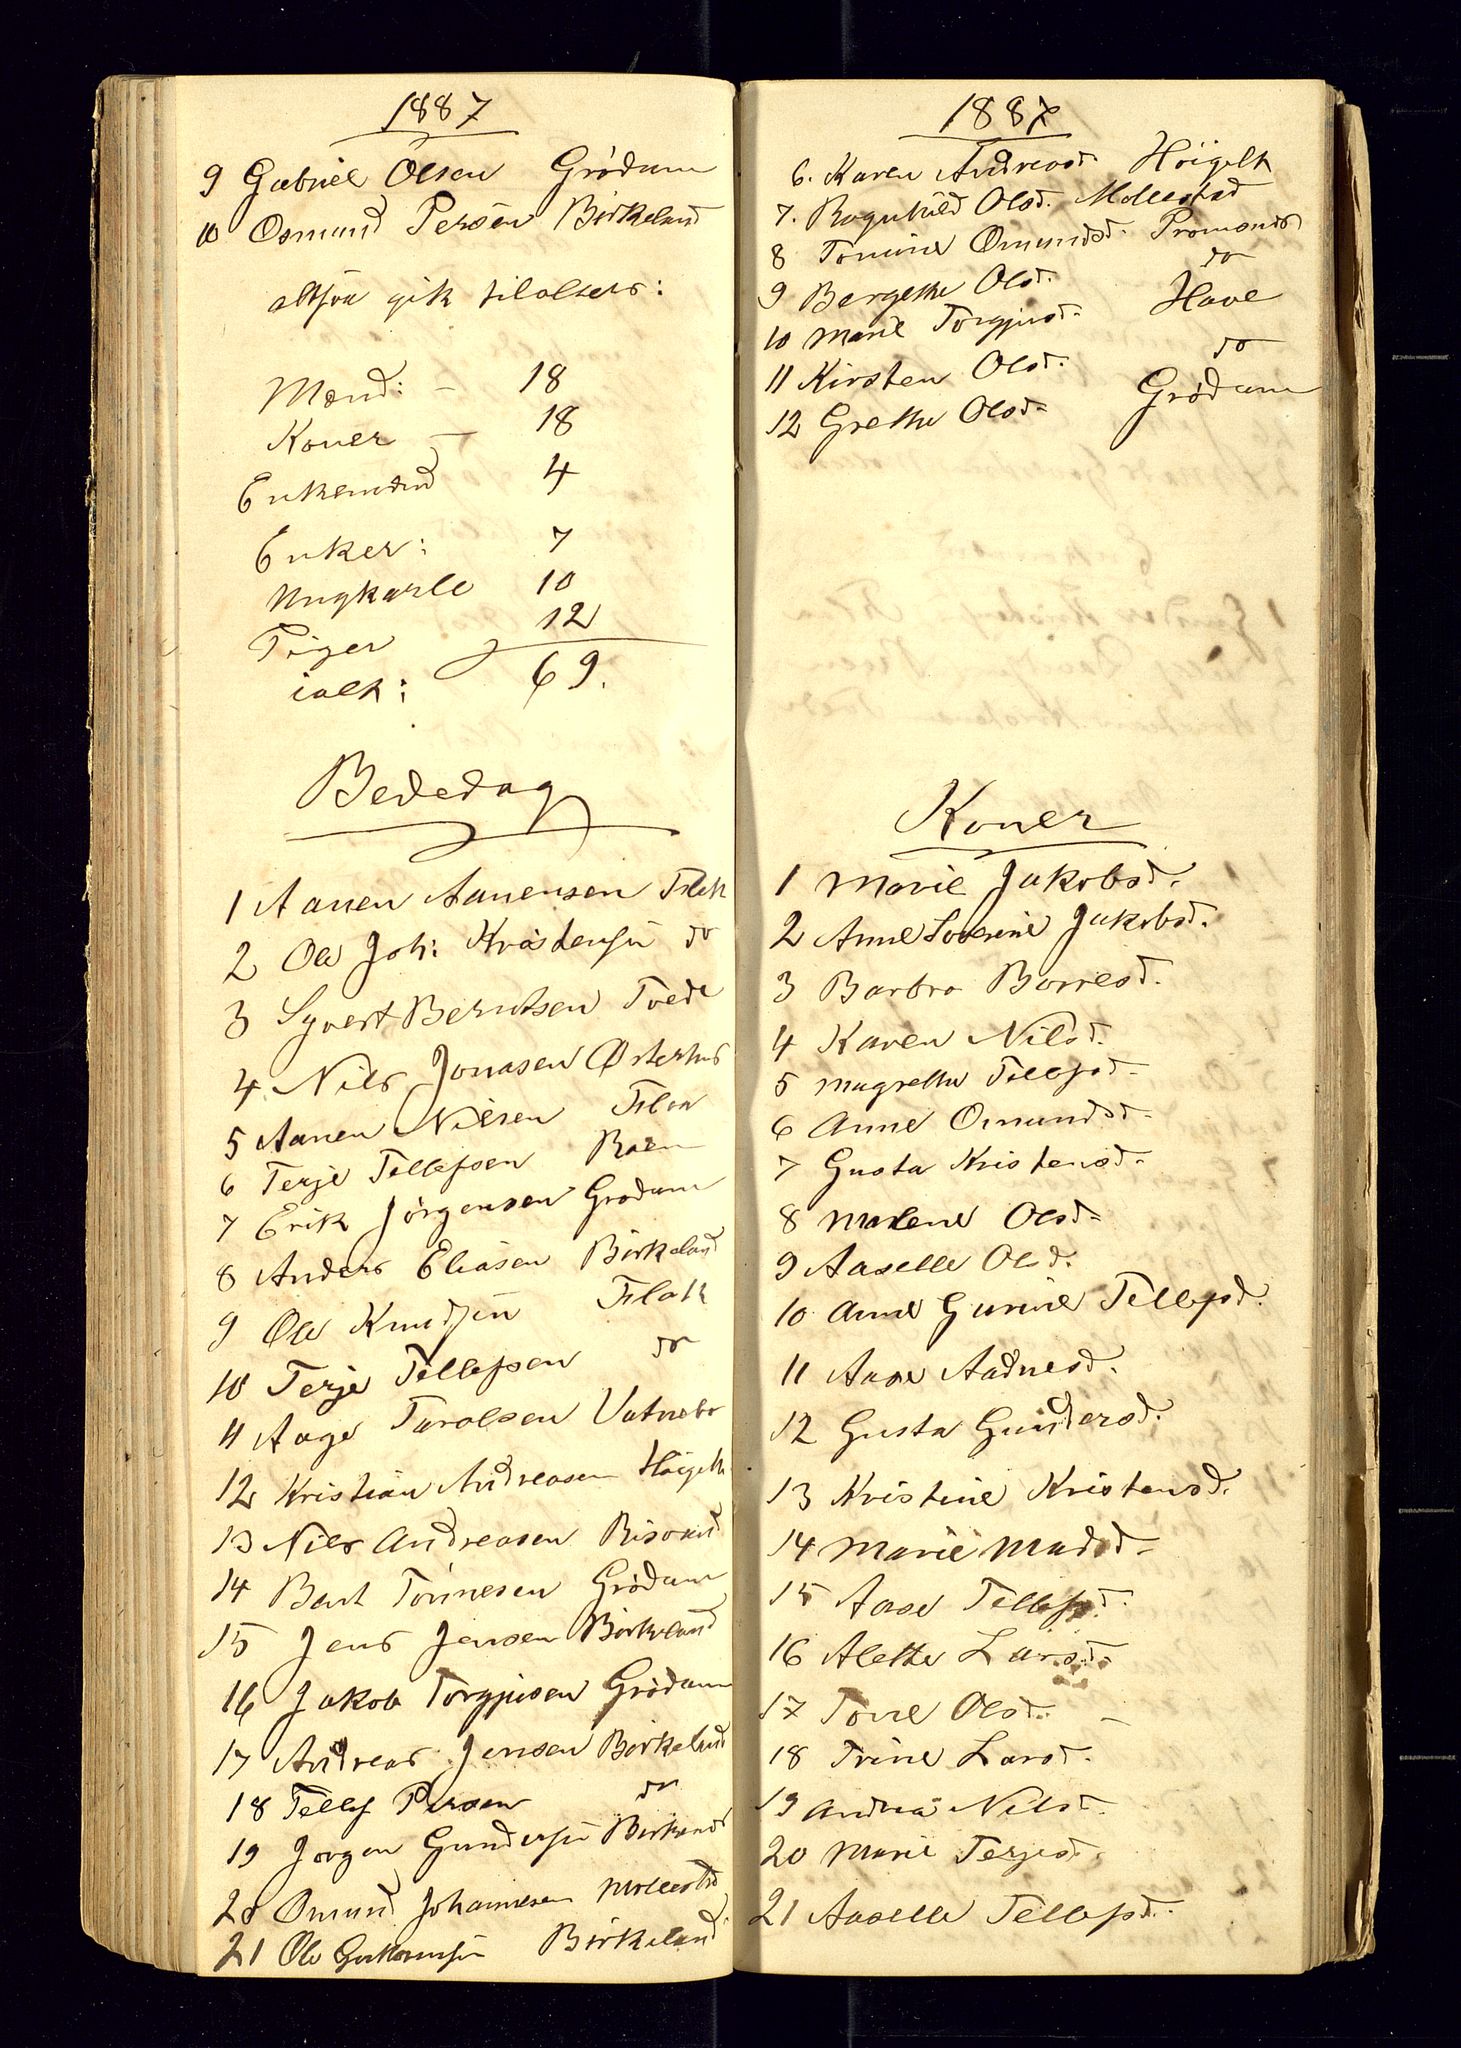 1887
9 Gabriel Olsen Grødum
10 Osmund Persen Birkeland
altsaa gik tilalters:
Mænd: — 18
Koner — 18
Enkemænd 4
Enker: 7
Ungkarle 10
Piger 12
ialt: 69.
Bededag
1 Aanen Aanensen Flak
2 Ole Joh: Kristensen do
3 Syvert Berntsen Tvede
4 Nils Jonasen Østerhus
5 Aanen Nilsen Flaa
6 Terje Tellefsen Roen
7 Erik Jörgensen Grødum
8 Anders Eliasen Birkeland
9 Ole Knudsen Flak
10 Terje Tellefsen do
11 Aage Taralsen Vatnebo
12 Kristian Andreasen Höigilt
13 Nils Andreasen Risland
14 Bent Tönnesen Grødum
15 Jens Jensen Birkeland
16 Jakob Torgjusen Grødum
17 Andreas Jensen Birkeland
18 Tellef Persen do
19 Jorgen Gundersen Birkeland
20 Omund Johannesen Mollestad
21 Ole Guttormsen Birkeland
1887
6. Karen Andreasd. Höigilt
7. Ragnhild Olsd. Mollestad
8 Tomine Omundsd. Tromonds
9 Bergette Olsd. do
10 Marie Torgjusd. Have
11 Kirsten Olsd. do
12 Grethe Olsd. Grødum
Koner
1 Marie Jakobsd.
2 Anne Severine Jakobsd.
3 Barbro Borresd.
4 Karen Nilsd.
5 Magrethe Tellefsd.
6 Anne Omundsd.
7 Gusta Kristensd.
8 Malene Olsd.
9 Aaselle Olsd.
10 Anne Gurine Tellefsd.
11 Aase Aadnesd.
12 Gusta Gundersd.
13 Kristine Kristensd.
14 Marie Madsd.
15 Aase Tellefsd.
16 Alette Larsd.
17 Tone Olsd. —
18 Trine Larsd.
19 Andrea Nilsd.
20 Marie Terjesd.
21 Aaselle Tellefsd.